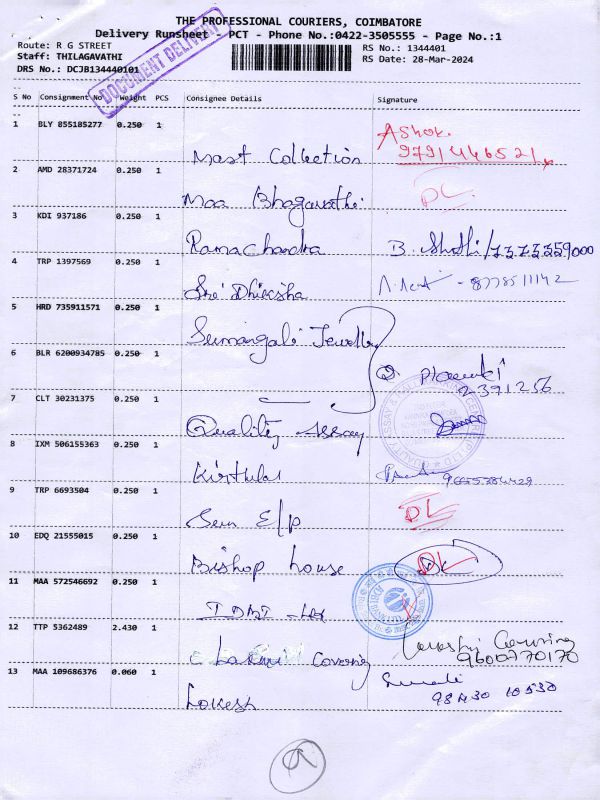 THE PROFESSIONAL COURIERS, COIMBATORE
Delivery Runsheet - PCT - Phone No.:0422-3505555 - Page No.:1
Route: R G STREET
Staff: THILAGAVATHI
DRS No.: DCJB134440101
RS No.: 1344401
RS Date: 28-Mar-2024
DOCUMENT DELIVERY
S No Consignment No Weight PCS Consignee Details Signature
1 BLY 855185277 0.250 1
Mast Collection Ashok.
2 AMD 28371724 0.250 1
Maa Bhagavathi DL
3 KDI 937186 0.250 1
Ramachandra B. 7373359000
4 TRP 1397569 0.250 1
Sri Dhieksha 8778511142
5 HRD 735911571 0.250 1
Sumangali Jewells
6 BLR 6200934785 0.250 1
2391256
7 CLT 30231375 0.250 1
Quality Assay
8 IXM 506155363 0.250 1
9 TRP 6693504 0.250 1
DL
10 EDQ 21555015 0.250 1
Bishop house DL
11 MAA 572546692 0.250 1
12 TTP 5362489 2.430 1
Laxmi Covering 9600770170
13 MAA 109686376 0.060 1
Lokesh 98430 10530